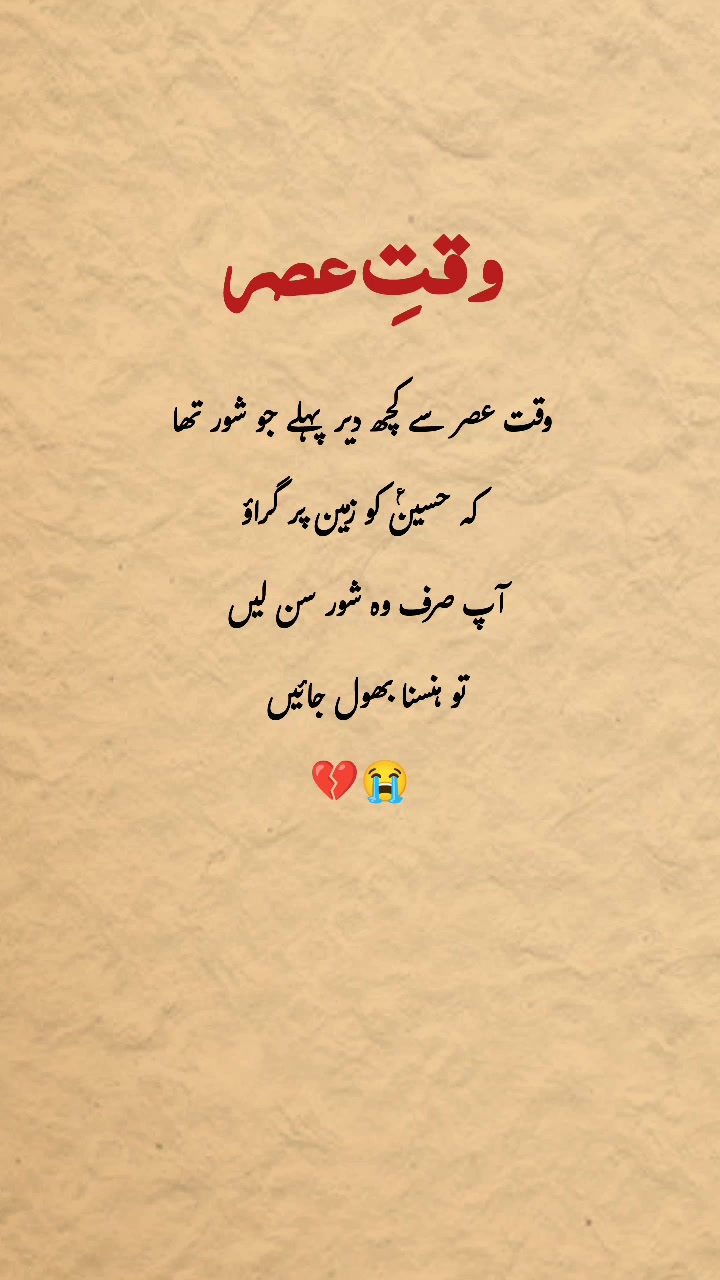 وقتِ عصر
وقت عصر سے کچھ دیر پہلے جو شور تھا
کہ حسینؑ کو زمین پر گراؤ
آپ صرف وہ شور سن لیں
تو ہنسنا بھول جائیں
😭💔